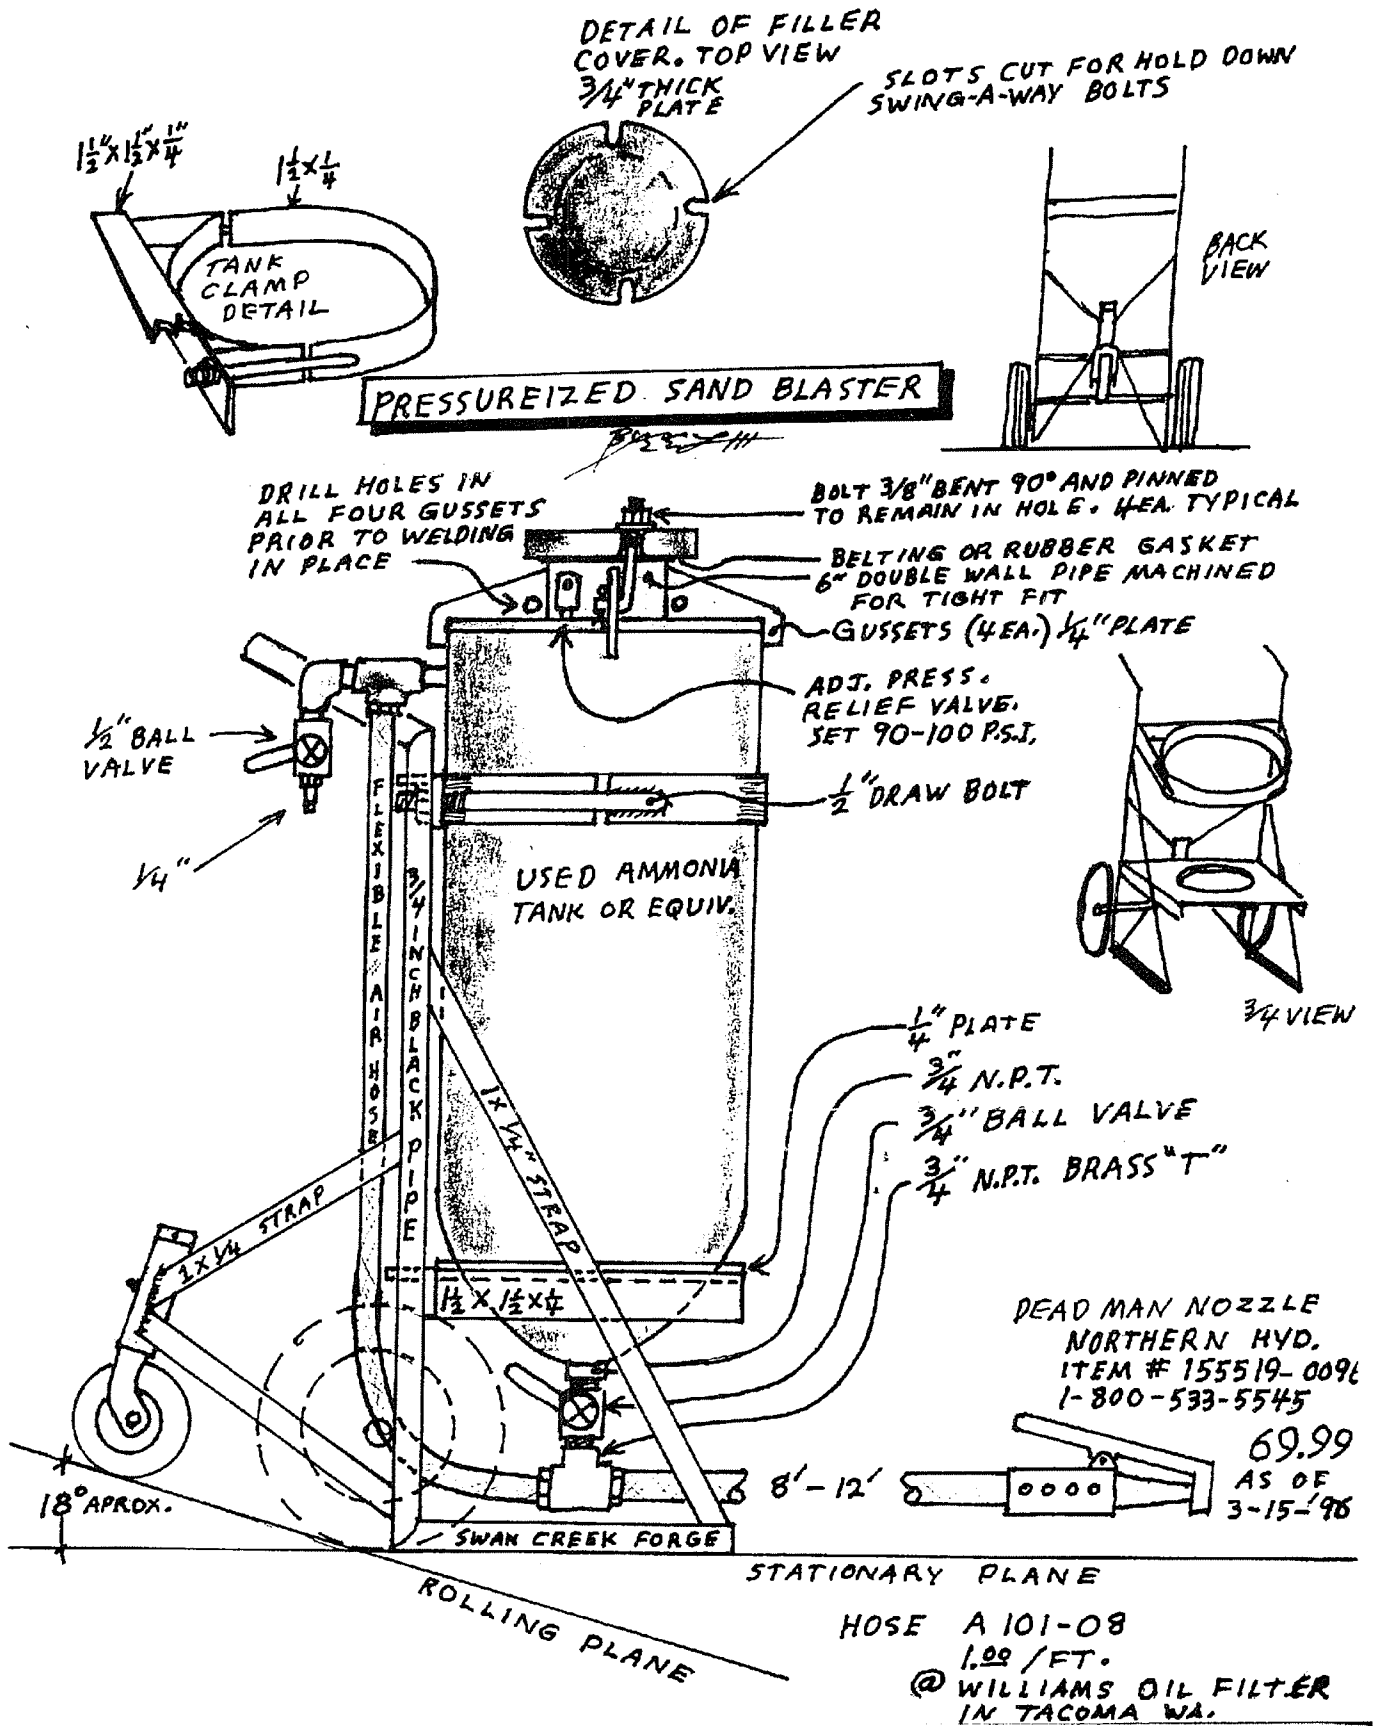 DETAIL OF FILLER
COVER. TOP VIEW
3/4" THICK
PLATE
SLOTS CUT FOR HOLD DOWN
SWING-A-WAY BOLTS
1 1/2" X 1 1/2" X 1/4"
1 1/2 X 1/4
TANK
CLAMP
DETAIL
BACK
VIEW
PRESSUREIZED SAND BLASTER
DRILL HOLES IN
ALL FOUR GUSSETS
PRIOR TO WELDING
IN PLACE
BOLT 3/8" BENT 90° AND PINNED
TO REMAIN IN HOLE. 4EA. TYPICAL
BELTING OR RUBBER GASKET
6" DOUBLE WALL PIPE MACHINED
FOR TIGHT FIT
GUSSETS (4EA.) 1/4" PLATE
ADJ. PRESS.
RELIEF VALVE.
SET 90-100 P.S.I.
1/2" BALL
VALVE
1/2" DRAW BOLT
1/4"
FLEXIBLE AIR HOSE
3/4 INCH BLACK PIPE
USED AMMONIA
TANK OR EQUIV.
3/4 VIEW
1/4" PLATE
3/4" N.P.T.
3/4" BALL VALVE
3/4" N.P.T. BRASS "T"
1 X 1/4" STRAP
1 X 1/4 STRAP
1 1/2 X 1 1/2 X 1/4
DEAD MAN NOZZLE
NORTHERN HYD.
ITEM # 155519-
1-800-533-5545
69.99
AS OF
3-15-'96
8'-12'
18° APROX.
SWAN CREEK FORGE
STATIONARY PLANE
ROLLING PLANE
HOSE A101-08
1.00 /FT.
@ WILLIAMS OIL FILTER
IN TACOMA WA.